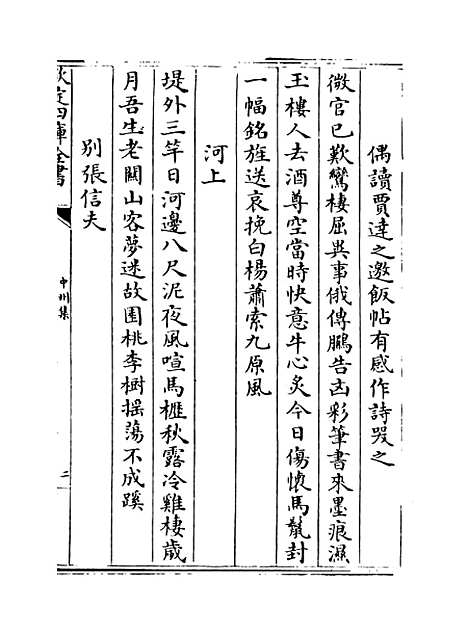 偶讀賈達之邀飯帖有感作詩哭之
微官已歎鸞棲屈異事俄傳鵩告凶彩筆書來墨痕濕
玉樓人去酒尊空當時快意牛心炙今日傷懷馬鬛封
一幅銘旌送哀挽白楊蕭索九原風
河上
堤外三竿日河邊八尺泥夜風喧馬櫪秋露冷雞棲歲
月吾生老關山客夢迷故園桃李樹摇蕩不成蹊
別張信夫
欽定四庫全書
中州集
二